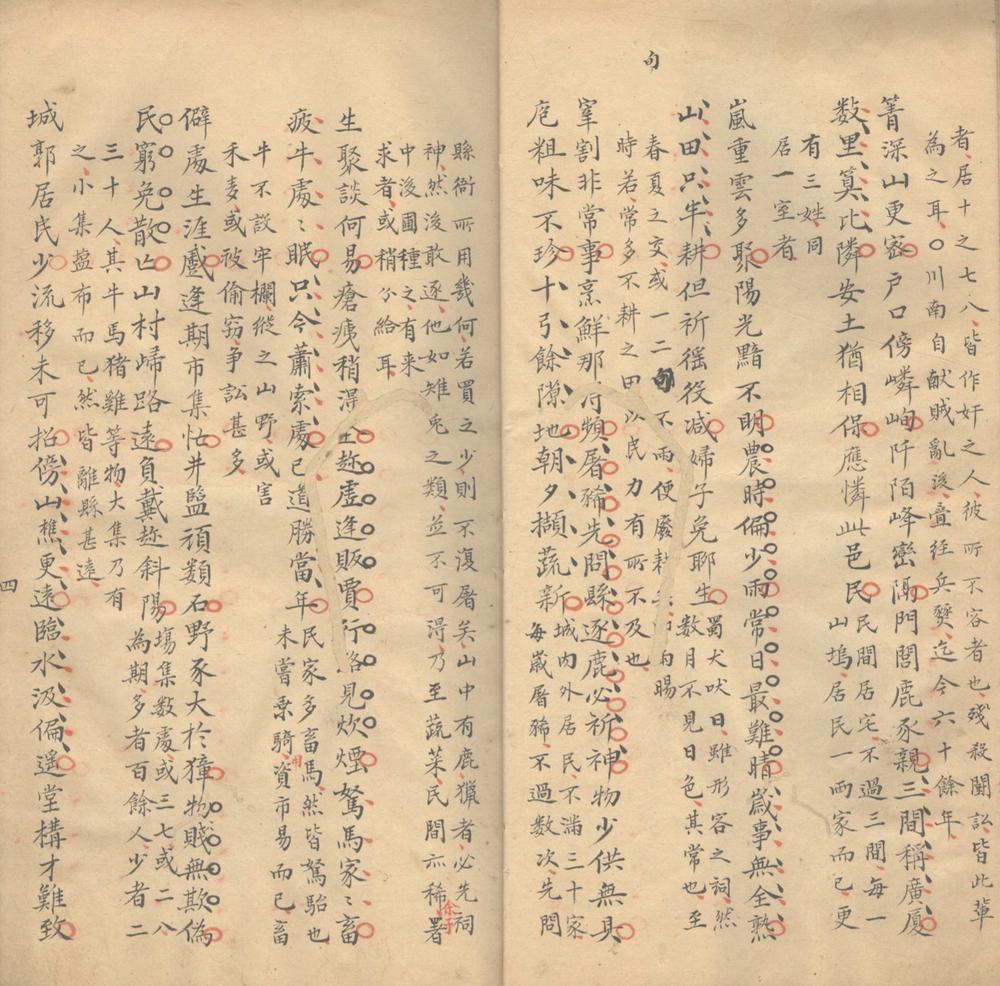 者居十之七八皆作奸之人彼所不容者也殘殺鬬訟皆此輩
為之耳○川南自献賊亂後疊经兵燹迄今六十餘年
菁深山更密戶口傍嶙峋阡陌峰巒隔門閭鹿豕親三間稱廣厦
民間居宅不過三間每一
居一室者
有三姓同
数里算比隣安土猶相保應憐此邑民
山塢居民一両家而已更
嵐重雲多聚陽光黯不明農時偏少雨常日最難晴歲事無全熟
蜀犬吠日雖形容之詞然
数月不見日色其常也至
山田只半耕但祈徭役减婦子免聊生
春夏之交或一二旬不雨便廢耕
時若常多不耕之田以民力有所不及也
句
宰割非常事烹鮮那用頻屠豨先問縣逐鹿必祈神物少供無具
庖粗味不珍十弓餘隙地朝夕擷蔬新
城内外居民不滿三十家
每嵗屠豨不過数次先問
縣衙所用幾何若買之少則不復屠矣山中有鹿獵者必先祠
神然後敢逐他如雉兎之類並不可得乃至蔬菜民間亦稀署
余于
中後圃種之有来
求者或稍分給耳
生聚談何易瘡痍稍得全趂虚逢販賈行路見炊煙駑馬家〻畜
疲牛處〻眠只今蕭索處已道勝當年
民家多畜馬然皆駑駘也
未嘗乗騎用資市易而已畜
牛不設牢欄縱之山野或害
禾麦或被偷窃争訟甚多
僻處生涯戲逢期市集怙井鹽頑類石野豕大於獐物賤無欺偽
民窮免散亡山村歸路遠負戴趂斜陽
塲集数處或三七或二八
為期多者百餘人少者二
三十人其牛馬猪雞等物大集乃有
之小集盐布而已然皆離縣甚遠
城郭居民少流移未可招傍山樵更遠臨水汲偏遥堂構才難致
四